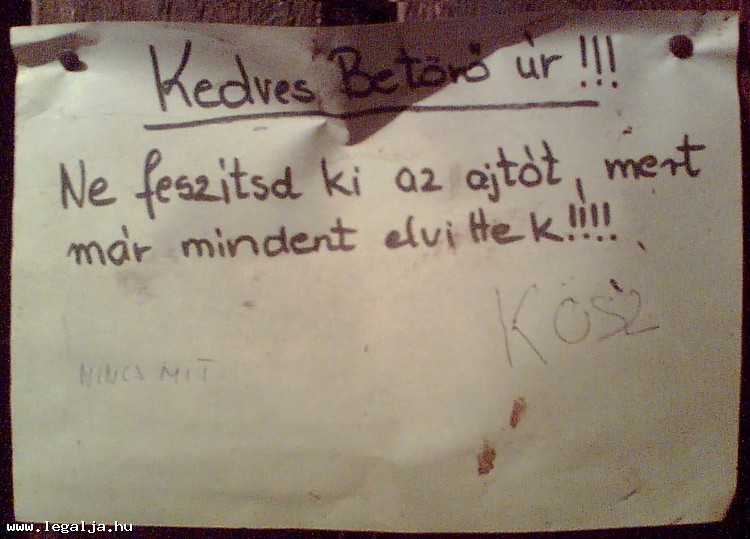 Kedves Betörő úr!!!
Ne feszítsd ki az ajtót, mert
már mindent elvittek!!!!
KÖSZ
NINCS MIT
www.legalja.hu